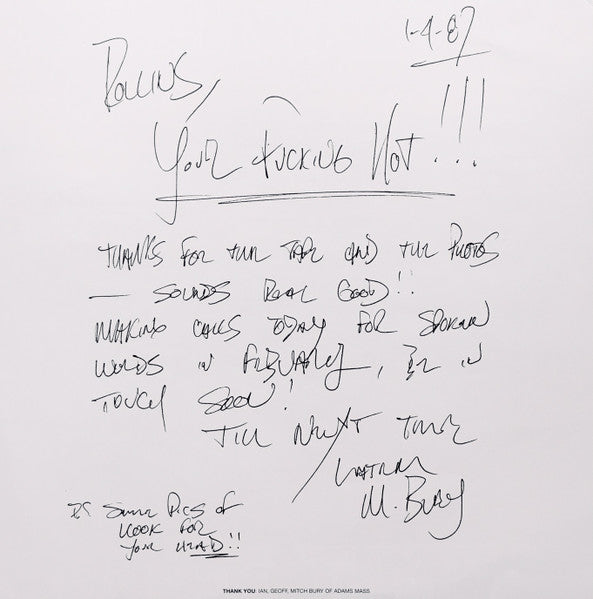 1-4-87
ROLLINS,
YOUR FUCKING HOT!!!
THANKS FOR THE TAPE AND THE PHOTOS
— SOUNDS REAL GOOD!!
MAKING CALLS TODAY FOR SPOKEN
WORDS IN FEBUARY, BE IN
TOUCH SOON!
TILL NEXT TIME
LATER
M. BURY
PS SOME PICS OF
FOR
YOUR HEAD!!
THANK YOU IAN, GEOFF, MITCH BURY OF ADAMS MASS